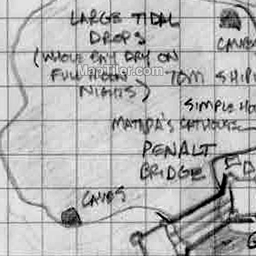 LARGE TIDAL
DROPS
(WHOLE BAY DRY ON
FULL MOON
NIGHTS)
MapTiler.com
TOM SHIP
SIMPLE HO
MATILDA'S CATHOUSE
PENALT
BRIDGE
CAVES